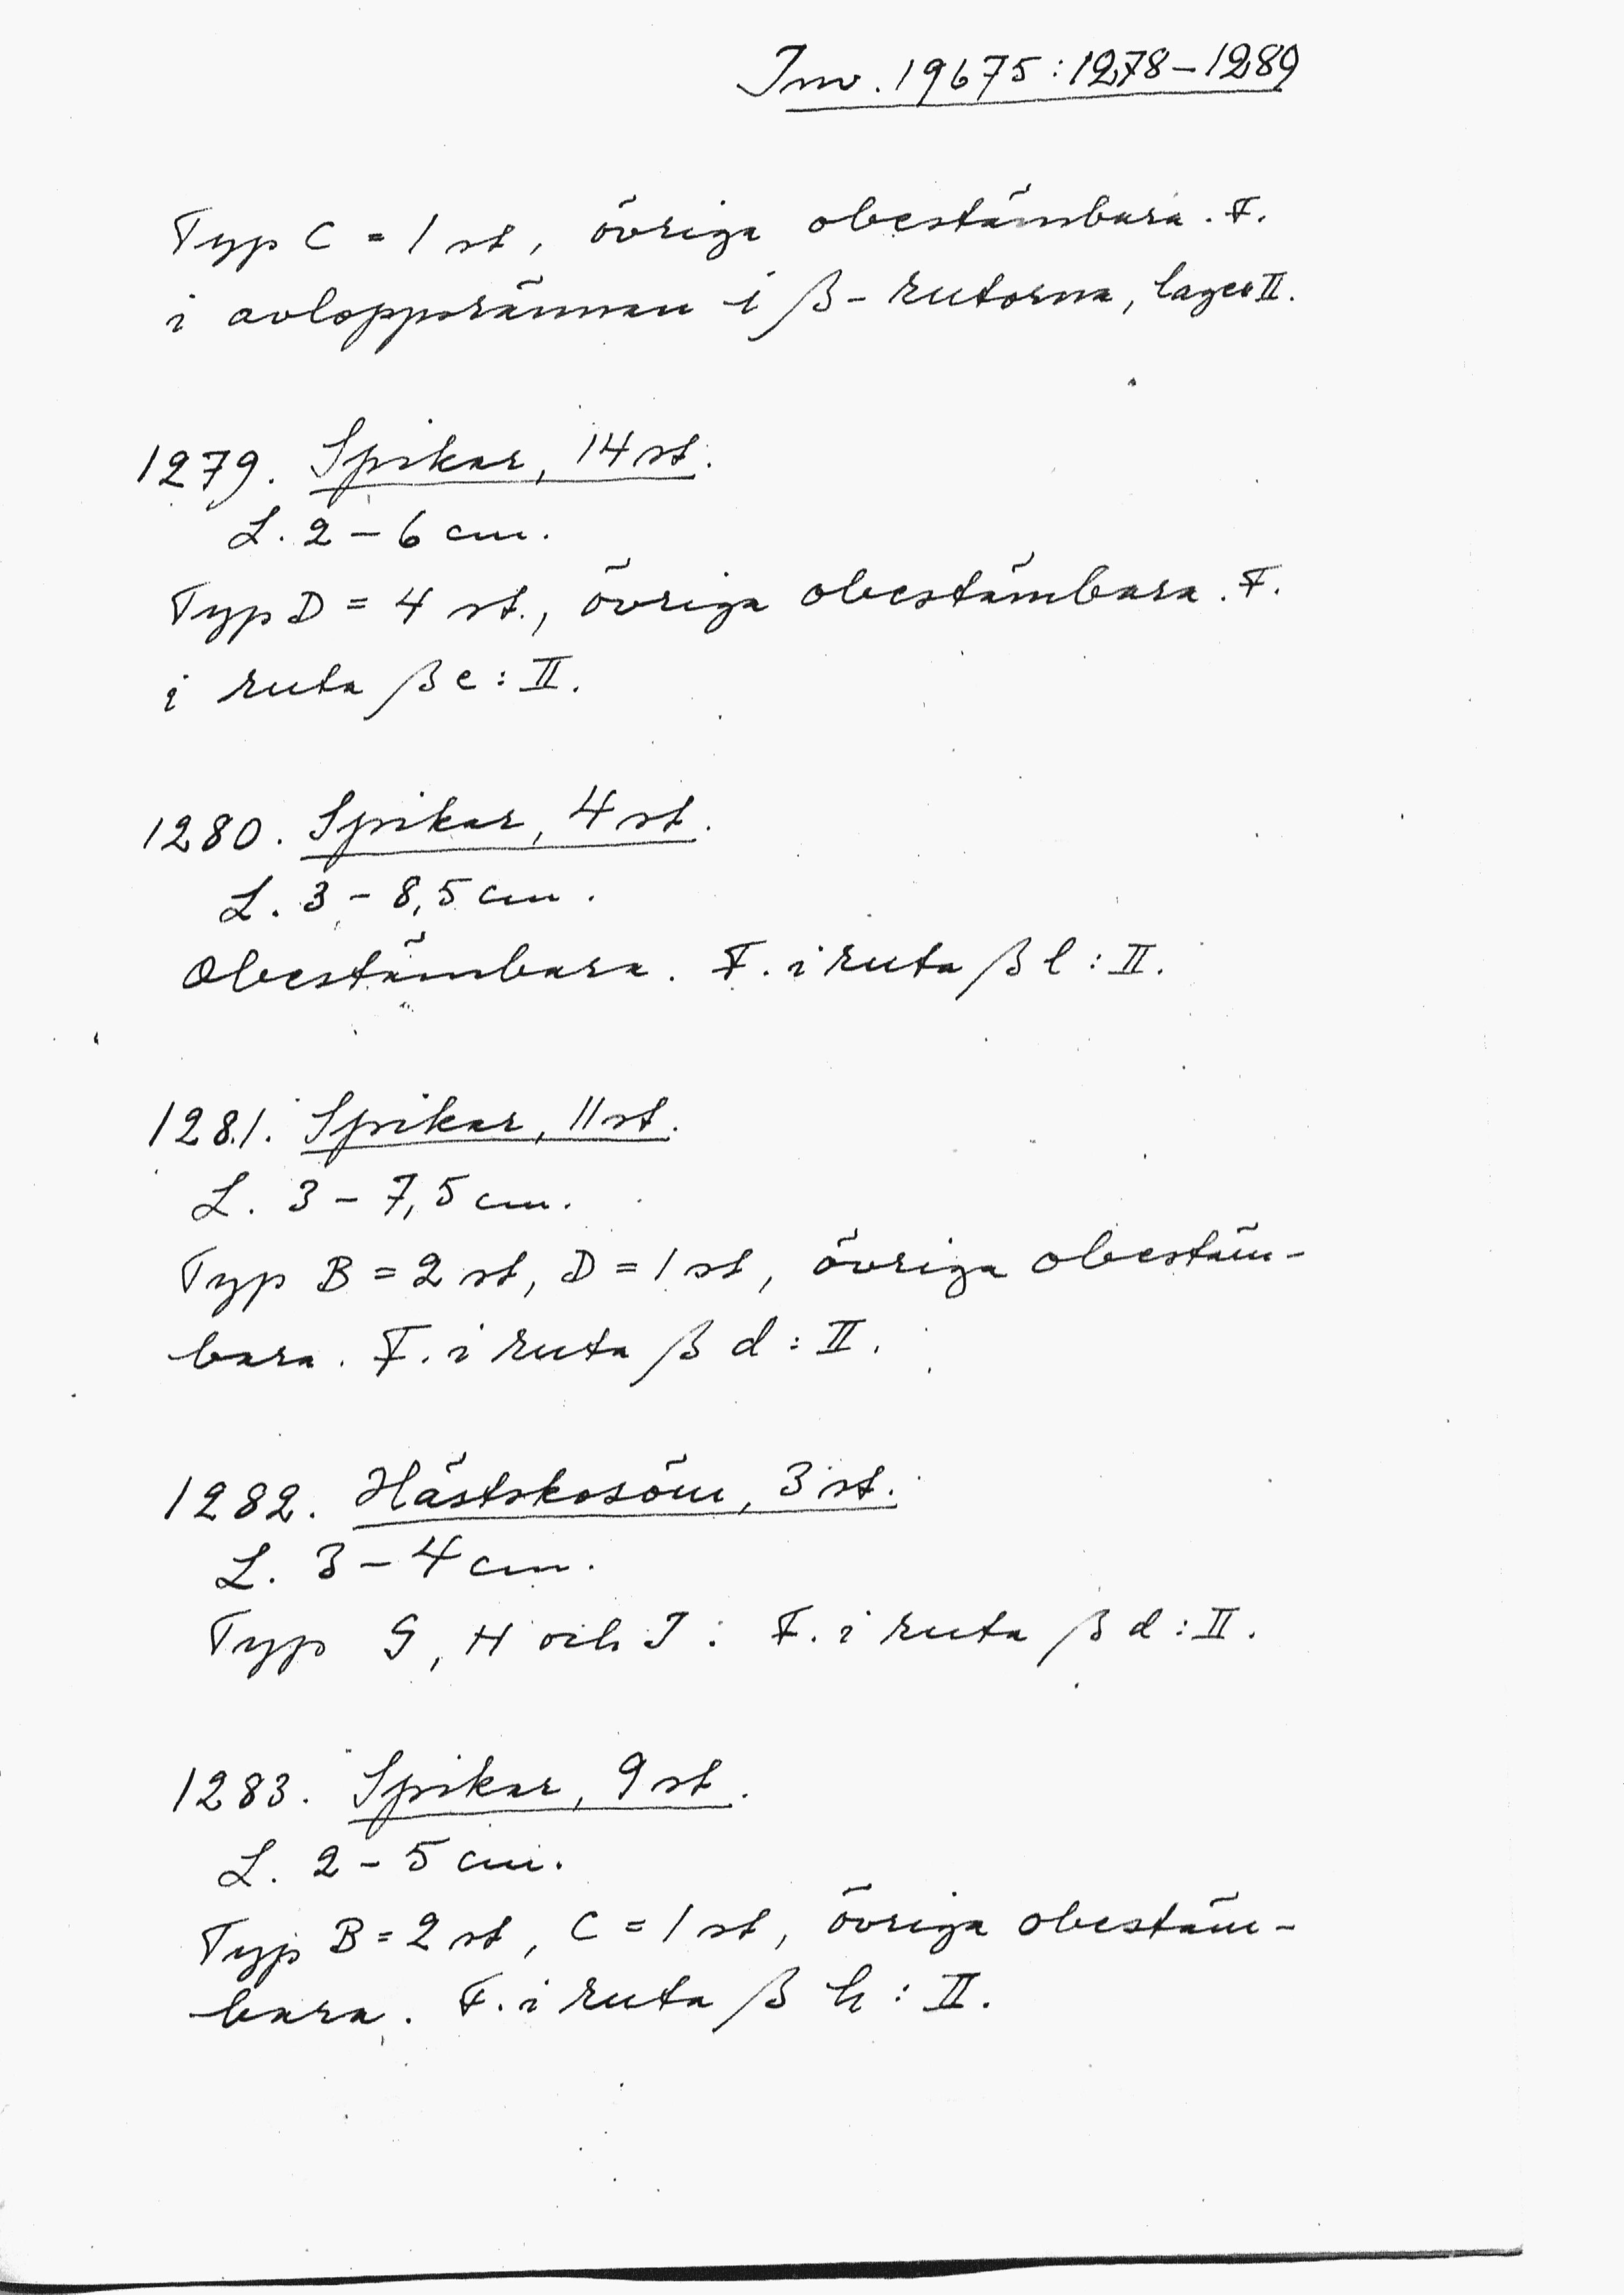 Inv. 19675:1278-1289
Typ C = 1 st, övriga obestämbara. F.
i avloppsrännan i β-rutorna, lager II.
1279. Spikar, 14 st.
L. 2-6 cm.
Typ D = 4 st., övriga obestämbara. F.
i ruta β e: II.
1280. Spikar, 4 st.
L. 3-8,5 cm.
Obestämbara. F. i ruta β l: II.
1281. Spikar, 11 st.
L. 3-7,5 cm.
Typ B = 2 st, D = 1 st, övriga obestäm-
bara. F. i ruta β d: II.
1282. Hästskosöm, 3 st.
L. 3-4 cm.
Typ G, H och I. F. i ruta β d: II.
1283. Spikar, 9 st.
L. 2-5 cm.
Typ B = 2 st, C = 1 st, övriga obestäm-
bara. F. i ruta β h: II.